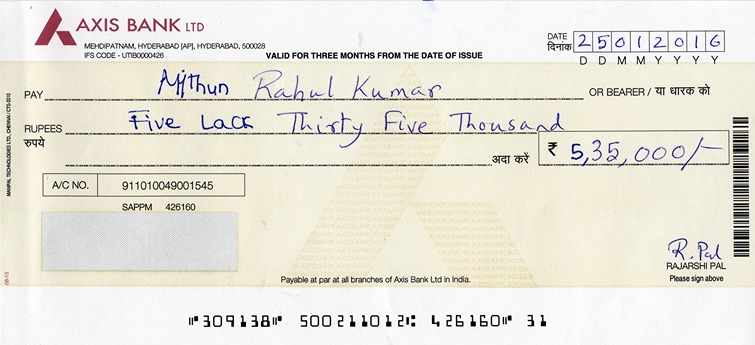 AXIS BANK LTD
MEHDIPATNAM, HYDERABAD [AP], HYDERABAD, 500028
IFS CODE - UTIB0000426
VALID FOR THREE MONTHS FROM THE DATE OF ISSUE
DATE
दिनांक 25012016
D D M M Y Y Y Y
PAY Mithun Rahul Kumar OR BEARER / या धारक को
RUPEES Five Lack Thirty Five Thousand
रुपये
अदा करें ₹ 5,35,000/-
A/C NO. 911010049001545
SAPPM 426160
MANIPAL TECHNOLOGIES LTD., CHENNAI / CTS-2010
08-15
R. Pal
RAJARSHI PAL
Please sign above
Payable at par at all branches of Axis Bank Ltd in India.
⑈309138⑈ 500211012⑆ 426160⑈ 31